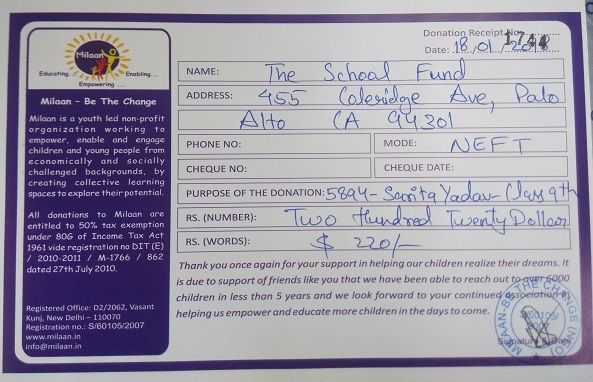 Milaan
Educating.... Enabling...
Empowering ....
Milaan – Be The Change
Milaan is a youth led non-profit
organization working to
empower, enable and engage
children and young people from
economically and socially
challenged backgrounds, by
creating collective learning
spaces to explore their potential.
All donations to Milaan are
entitled to 50% tax exemption
under 80G of Income Tax Act
1961 vide registration no DIT (E)
/ 2010-2011 / M-1766 / 862
dated 27th July 2010.
Registered Office: D2/2062, Vasant
Kunj, New Delhi – 110070
Registration no.: S/60105/2007
www.milaan.in
info@milaan.in
Donation Receipt No. 1744
Date: 18/01/2018
NAME: The School Fund
ADDRESS: 455 Coleridge Ave, Palo
Alto CA 94301
PHONE NO: MODE: NEFT
CHEQUE NO: CHEQUE DATE:
PURPOSE OF THE DONATION: 5894- Sarita Yadav- Class 9th
RS. (NUMBER): Two Hundred Twenty Dollar
RS. (WORDS): $ 220/-
Thank you once again for your support in helping our children realize their dreams. It
is due to support of friends like you that we have been able to reach out to over 6000
children in less than 5 years and we look forward to your continued association in
helping us empower and educate more children in the days to come.
MILAAN-BE THE CHANGE (NGO)
S/60105/
2007
Signature & Date